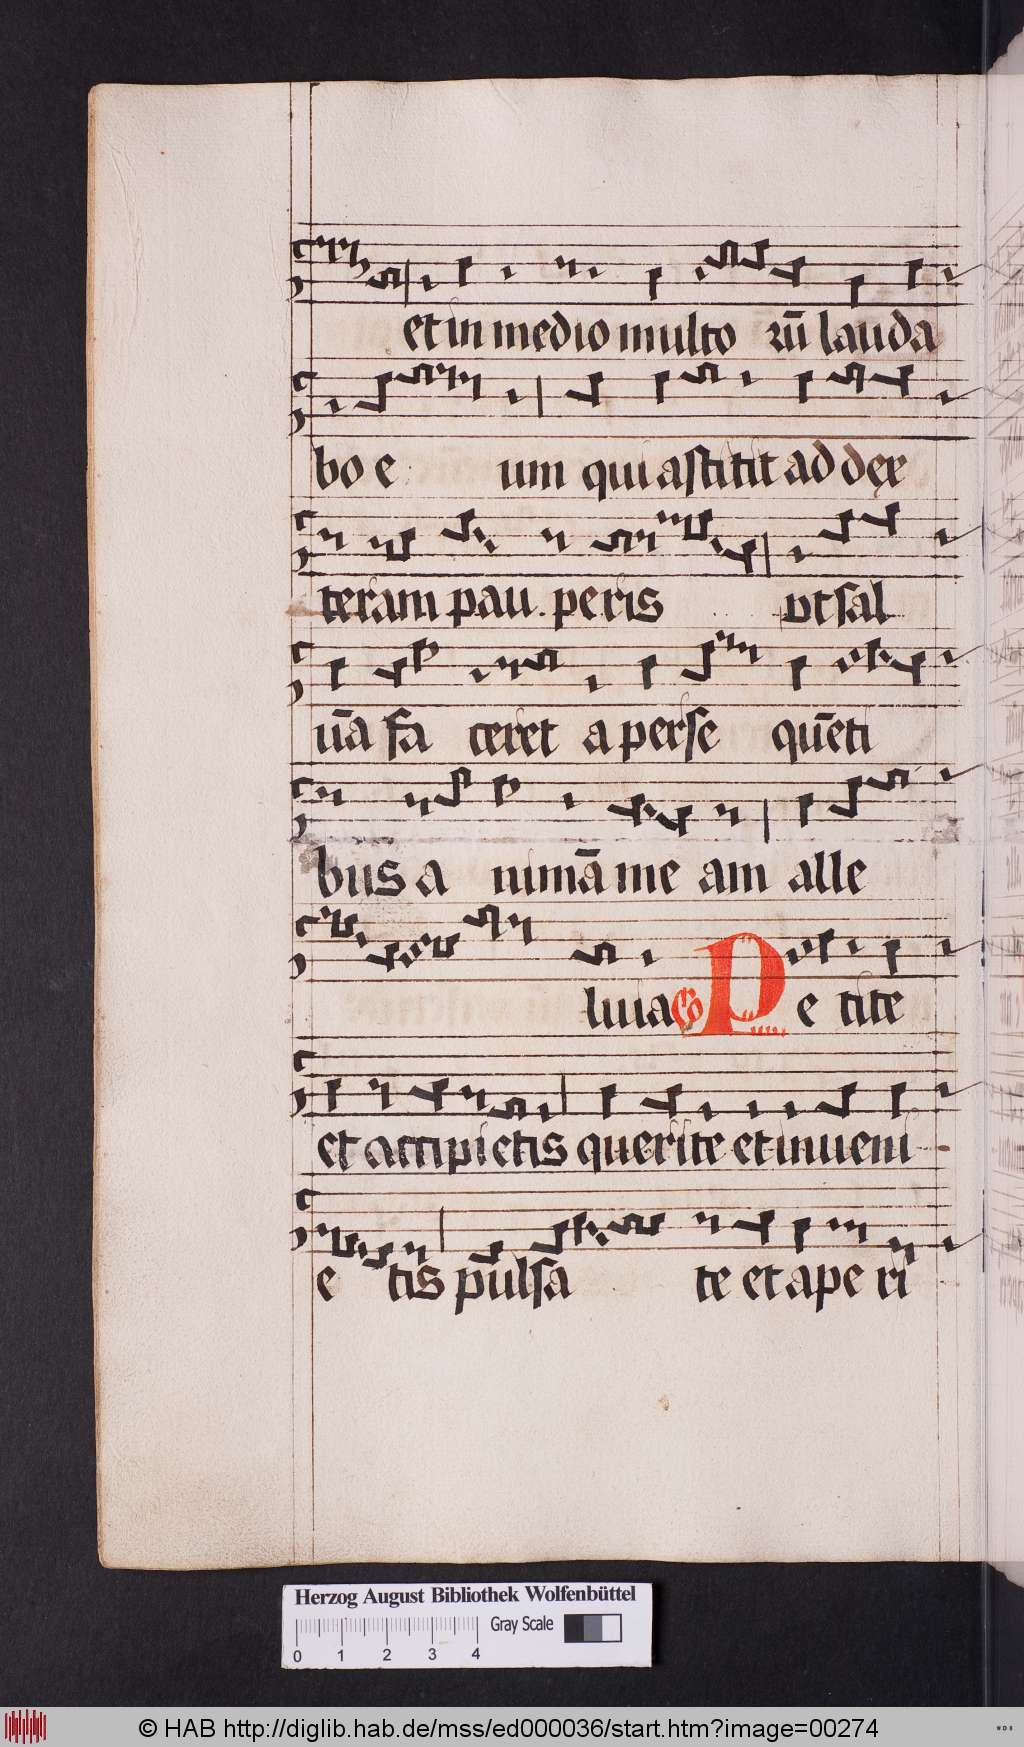 et in medio multo rū lauda
bo e um qui astitit ad dex
teram pau . peris vt sal
uā fa ceret a perse quēti
bus a nimā me am alle
luia Co Pe tite
et accipietis querite et inueni
e tis pulsa te et ape ri
Herzog August Bibliothek Wolfenbüttel
Gray Scale
0 1 2 3 4
© HAB http://diglib.hab.de/mss/ed000036/start.htm?image=00274